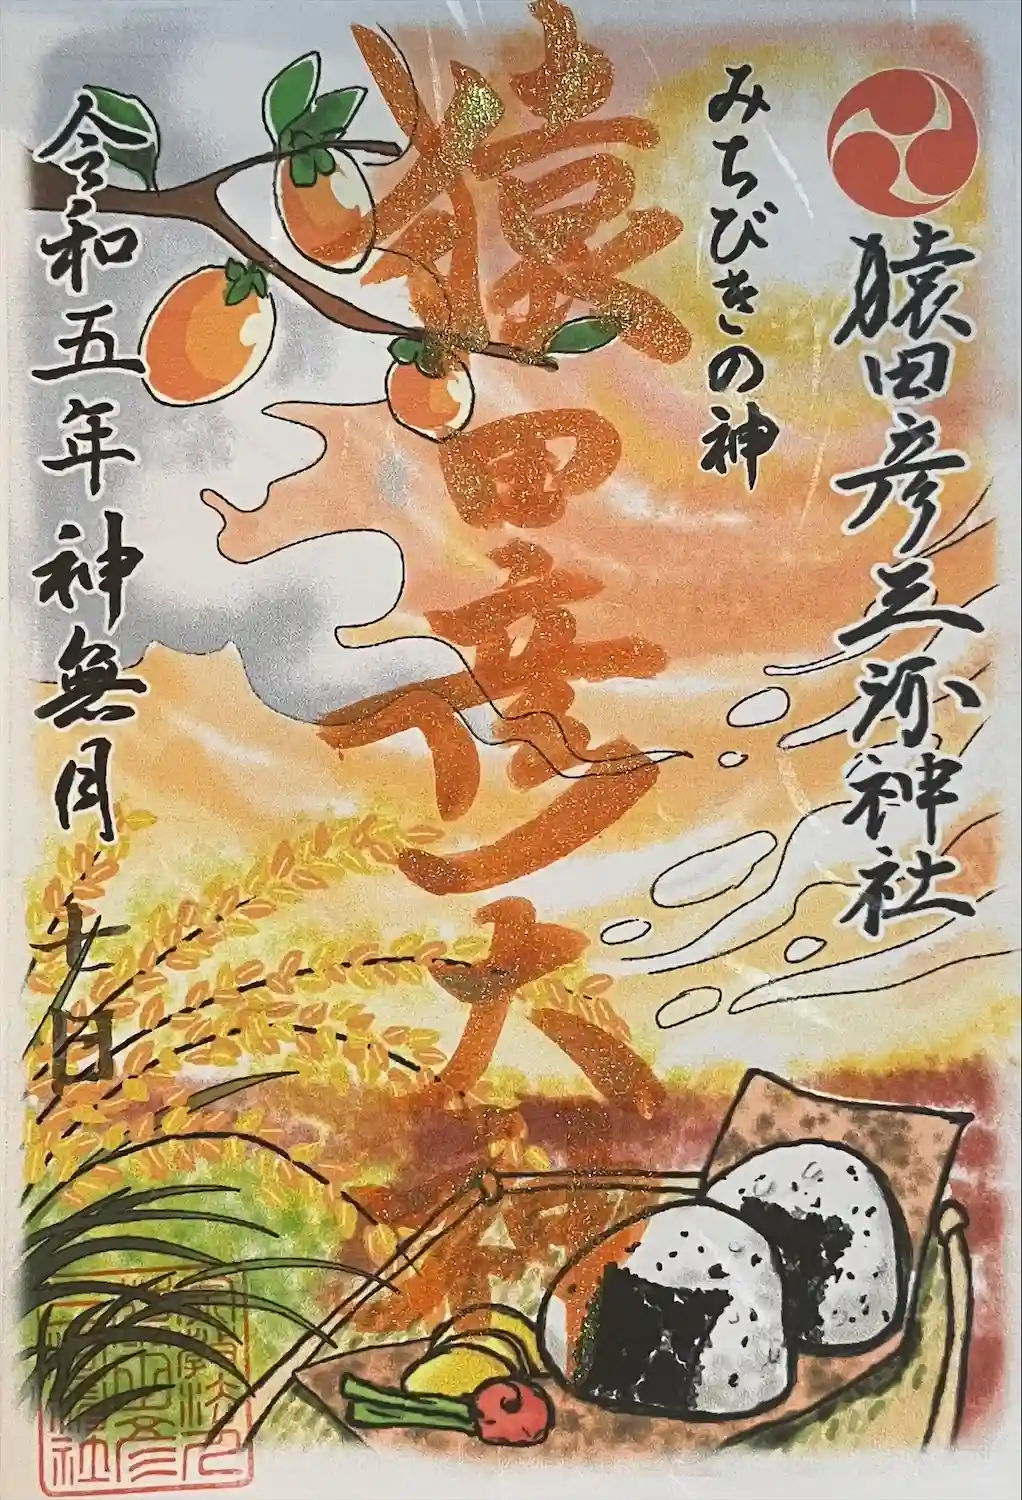 猿田彦三河神社
みちびきの神
猿田彦大神
令和五年神無月廿日